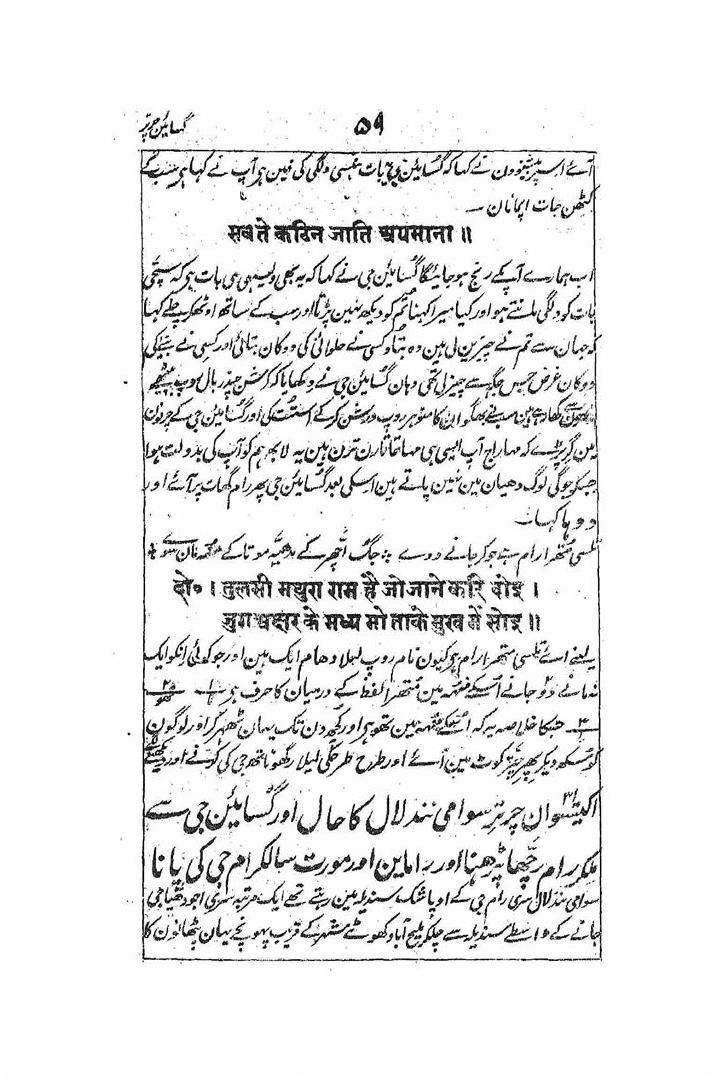 گسائین چرتر
۵۹
آئے اسپر سبھون نے کہا کہ گسائین جی یہ بات ہنسی دلگی کی نہین ہر آپ نے کہا ہر سب تے
کٹھن جات اپمانان ۔
सबते कठिन जाति अपमाना ॥
اب ہمارے آپکے رنج ہو جائیگا گسائین جی نے کہا کہ یہ بھی ویسی ہی بات ہر کہ سچی
بات کو دلگی مانتے ہو اور کیا میرا کہنا تم کو دیکھ نہین پڑتا اور سب کے ساتھ اوٹھکر چلے کہا
کہ جہان سے تم نے چیزین لی ہین وہ بتاؤ کسی نے حلوائی کی دوکان بتائی اور کسی نے بنیے کی
دوکان غرض جس جگہ سے چیز لی تھی وہان گسائین جی نے دکھایا کہ کرشن چندر بال روپ بیٹھے
کھا رہے ہین سبنے بھگوان کا منوہر روپ درشن کر کے استت کی اور گسائین جی کے چرنون
مین گر پڑے کہ مہاراج آپ ایسی ہی مہاتما تارن ترن ہین یہ لابھ ہم کو آپ کی بدولت ہوا
جسکو جوگی لوگ دھیان مین نہین پاتے ہین اسکی بعد گسائین جی پھر رام گھاٹ پر آئے اور
دوہا کہا ۔
تلسی متھرا رام ہے جو کر جانے دوے ؞ جگ اچھر کے مدھیہ مو تا کے مکھ مان سوے
दो॰ । तुलसी मथुरा राम है जो जाने करि दोइ ।
जुग अक्षर के मध्य मो ताके मुख में सोइ ॥
یعنے اے تلسی متھرا رام ہر کیون نام روپ لیلا دھام ایک ہین اور جو کوئی انکو ایک
نہ مانے دو جانے اسکے منھ مین متھرا لفظ کے درمیان کا حرف ہر
جسکا خلاصہ یہ کہ اسکے منھ مین تھو ہر اور کچھ دن تک یہان ٹھہر کر اور لوگون
کو سکھ دیکر پھر چتر کوٹ مین آئے اور طرح طرحکی لیلا رگھوناتھ جی کی کرنے اور دیکھنے لگے
اکتیسوان چرتر سوامی نند لال کا حال اور گسائین جی سے
ملکر رام رچھا پڑھنا اور راماین اور مورت سالگرام جی کی پانا
سوامی نند لال سری رام جی کے اوپاشک سندیلہ مین رہتے تھے ایک مرتبہ سری اجودھیا جی
جانے کے واسطے سندیلہ سے چلکر ملیح آباد کھوٹے شہر کے قریب پہونچے یہان پٹھانون کا